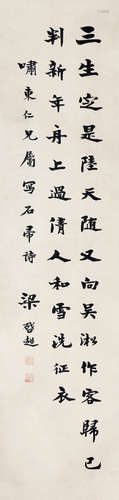 三生定是陸天随又向吳淞作客歸已
判新年舟上過倩人和雪洗征衣
嘯東仁兄屬 寫石帚詩 梁啓超